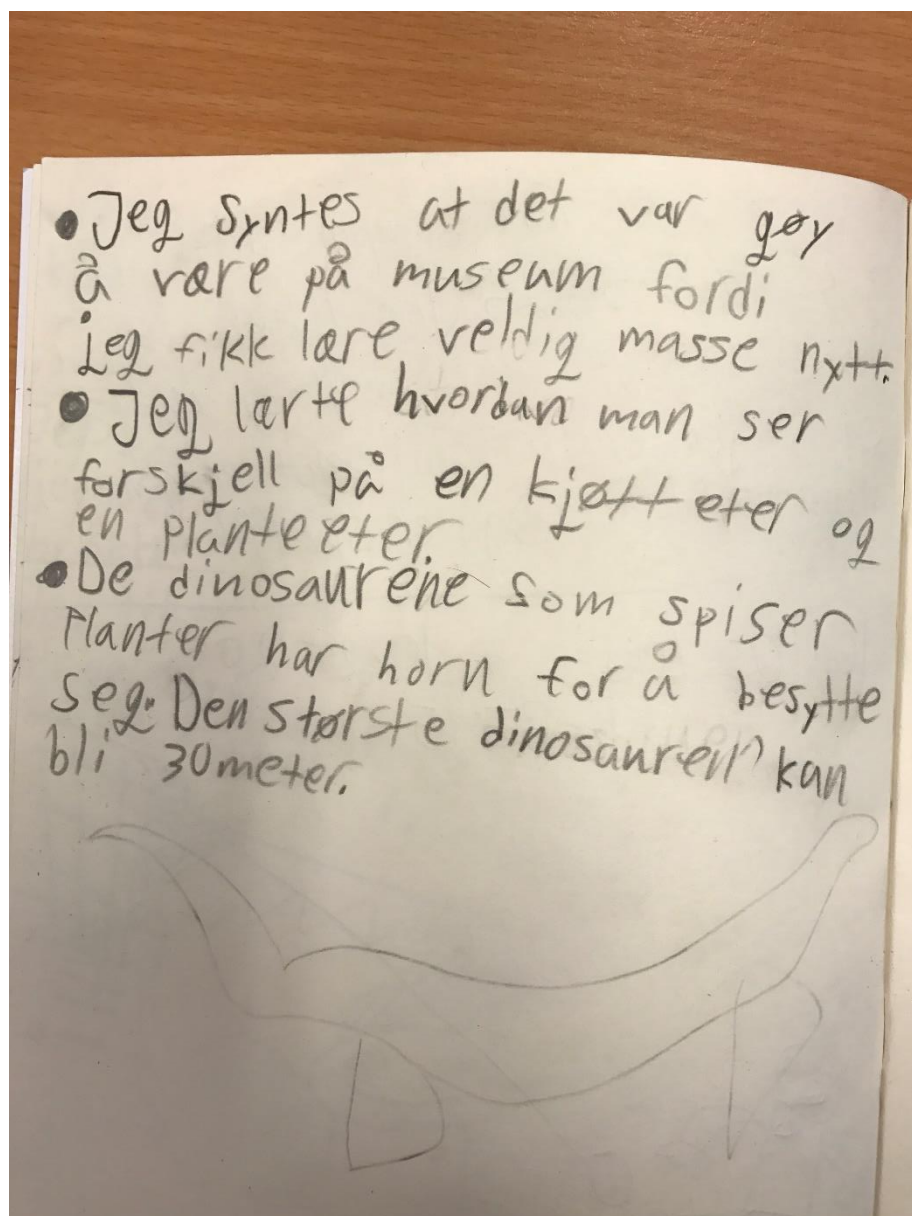 • Jeg syntes at det var gøy
å være på museum fordi
jeg fikk lære veldig masse nytt.
• Jeg lærte hvordan man ser
forskjell på en kjøtt eter og
en plante eter.
• De dinosaurene som spiser
Planter har horn for å besytte
seg. Den største dinosauren kan
bli 30meter.